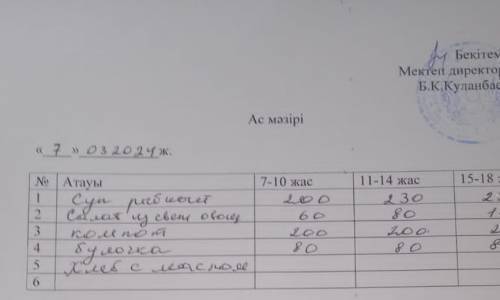 Бекітем
Мектеп директор
Б.К.Куланбас
Ас мәзірі
« 7 » 03 2024 ж.
№ Атауы 7-10 жас 11-14 жас 15-18
1 Суп 200 230 2
2 Салат из свеж овощ 60 80 1
3 компот 200 200 2
4 булочка 80 80 8
5 Хлеб с маслом
6